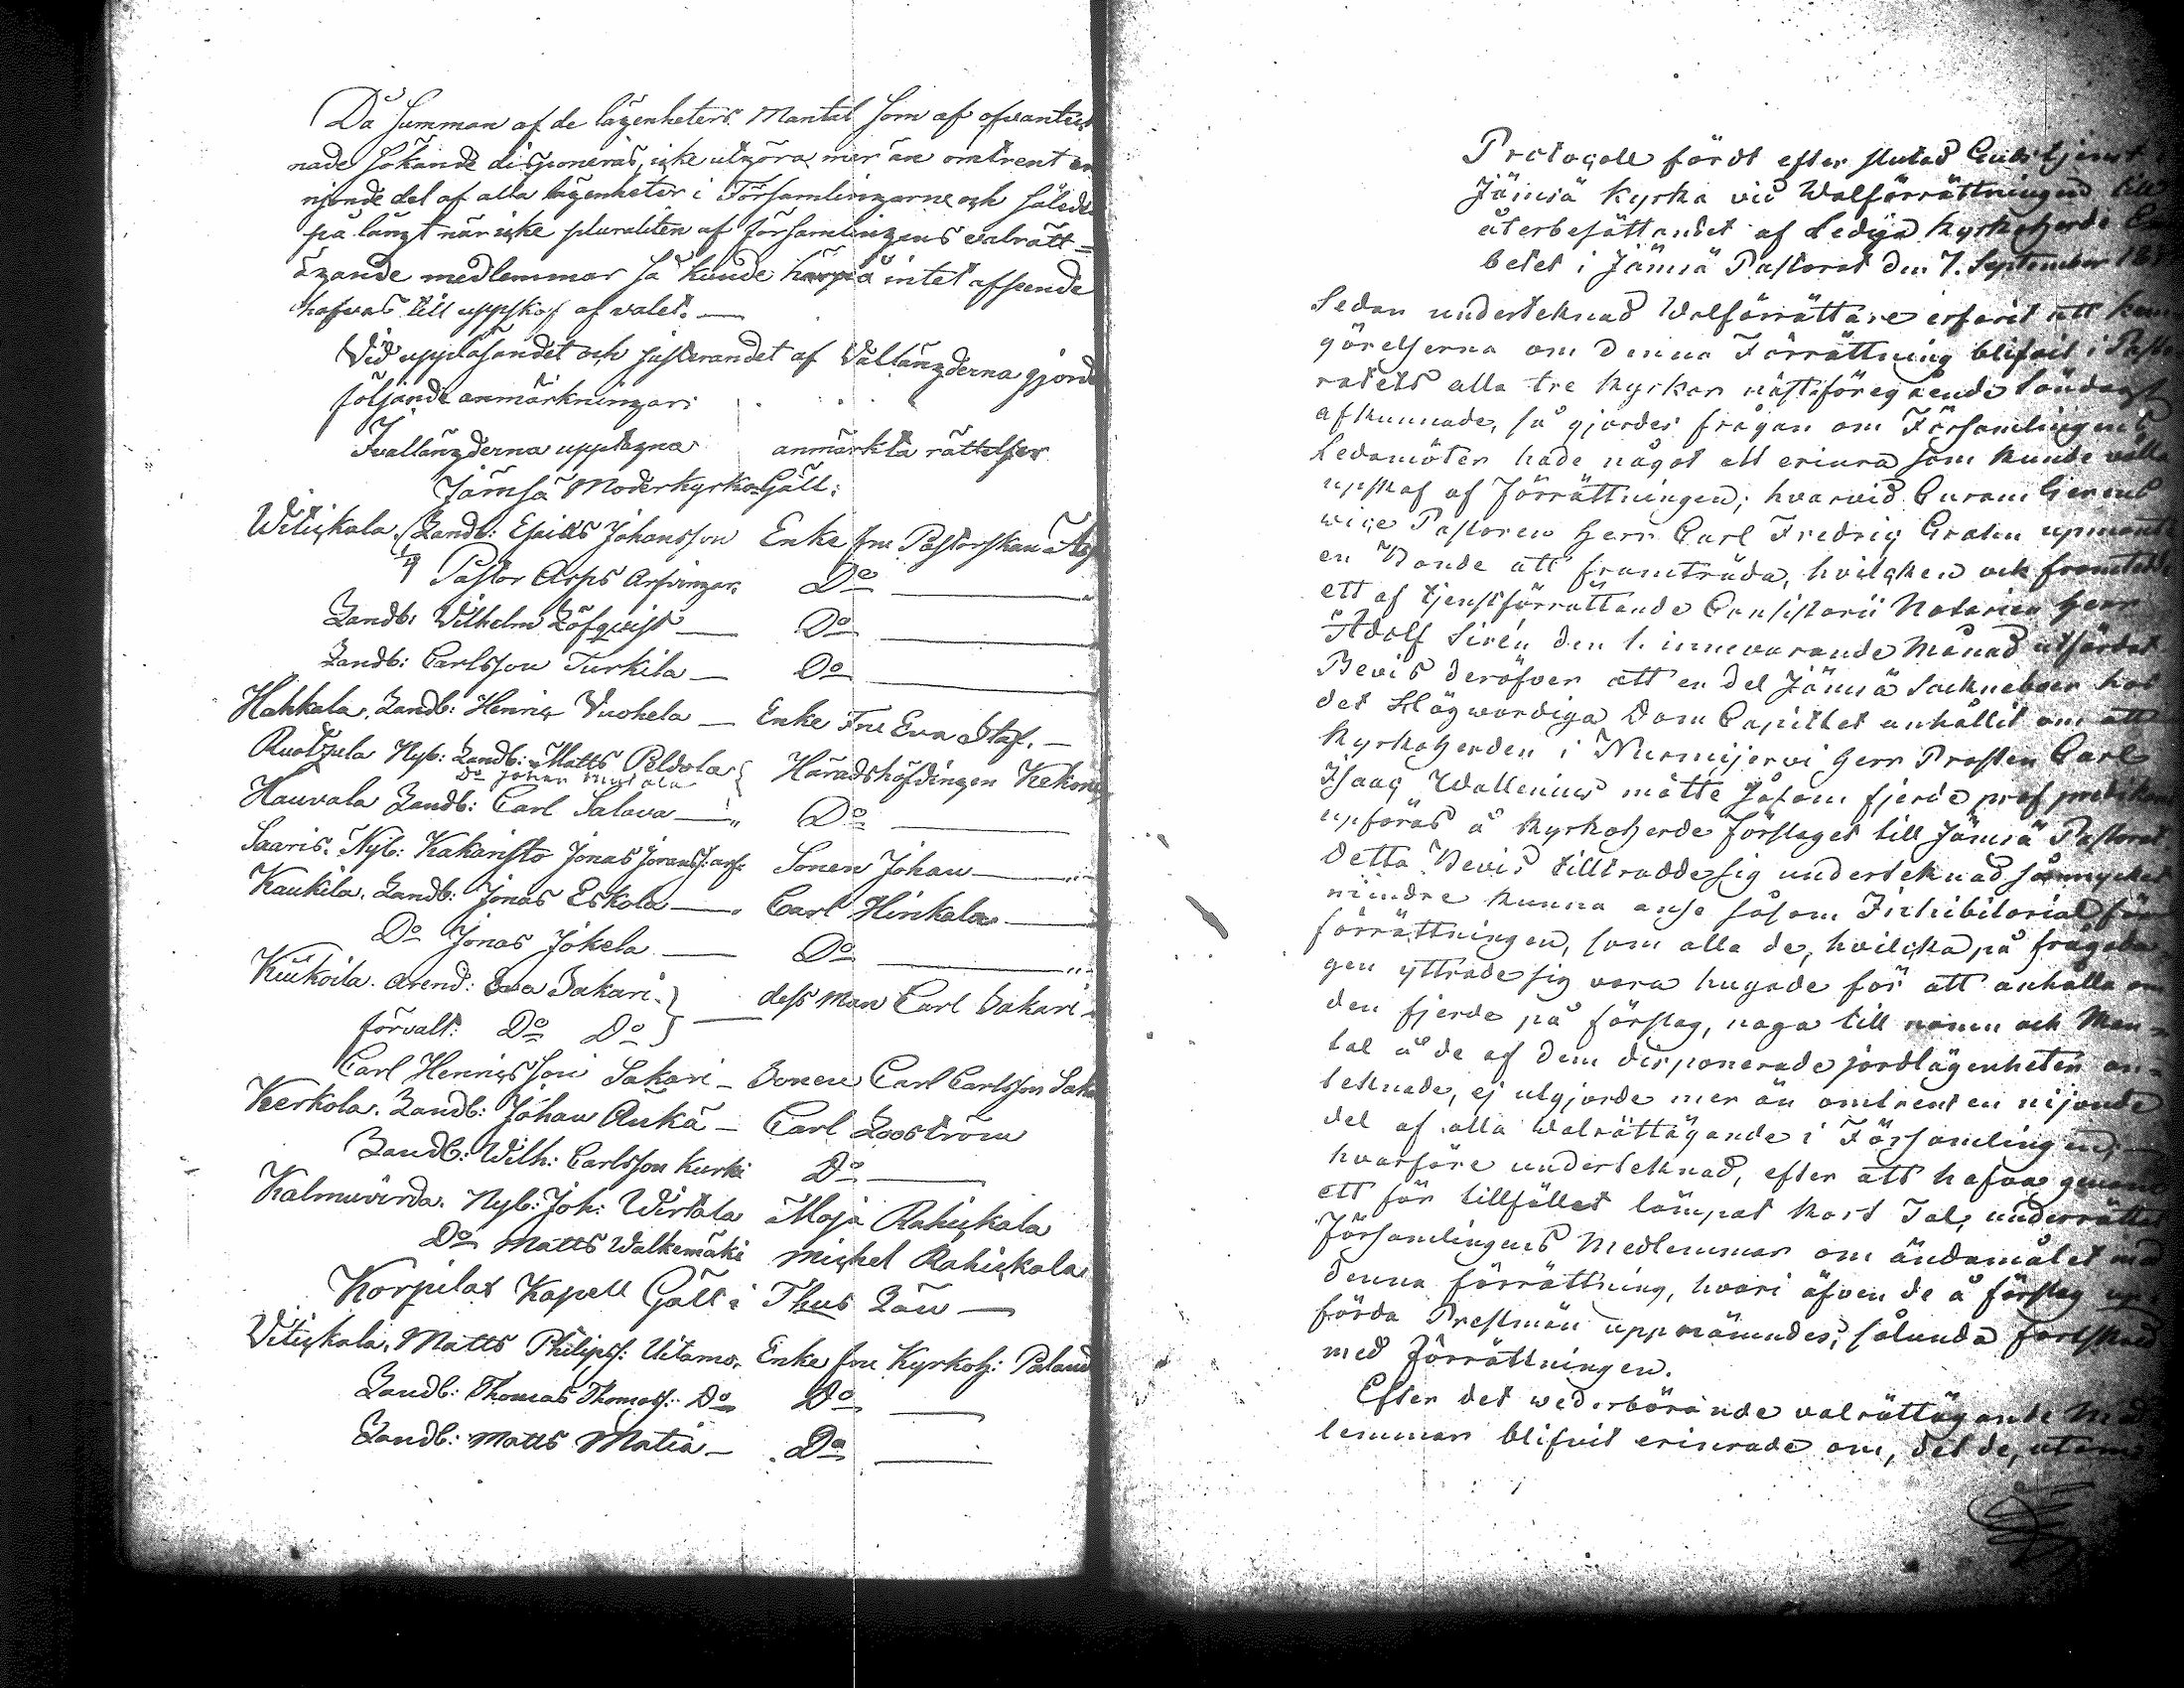 Då summan af de lägenheters Mantal som af ofvanteck
nade sökande disponeras, icke utgöra mer än omtrent en
nionde del af alla lägenheter i Församlingarne och således
på långt när icke pluraliten af församlingens valrätt=
ägande medlemmar så kunde härpå intet afseende
hafvas till uppskof af valet. —
Vid uppläsandet och justerandet af Vallängderna gjordes
följande anmärkningar:
I vallängderna upptagna anmärkta rättelser
Jämsä Moderkyrko Gäll:
Witickala, Landb: Esaias Johansson Enke fru Pastorskan Asp
Pastor Asps Arfvingar. Do —
Landb: Wilhelm Löfqvist — Do —
Landb: Carlsson Turkila — Do —
Hahkala, Landb: Henric Vuohela — Enke Fru Eva Staf. —
Ruotzula Nyb: Landb: Matts Peldola Häradshöfdingen Kekoni
Do Johan
Hauvala Landb: Carl Salava — Do —
Saaris. Nyb: Kakaristo Jonas Joranss: arf: Sonen Johan —
Kaukila. Landb: Jonas Eskola — Carl Hinkala —
Do Jonas Jokela — Do —
Kiukoila. Arend: Eva Sakari. } — dess man Carl Sakari
förvalt: Do Do }
Carl Henricsson Sakari — Sonen Carl Carlsson Saka
Kerkola. Landb: Johan Ankä — Carl Looström
Landb: Wilh: Carlsson Kurki Do —
Kalmavirda. Nyb: Joh: Wirtala Maja Rahickala
Do Matts Walkemäki Michel Rahickala
Korpilax Kapell Gäll: Thus Län —
Vitickala, Matts Philipss: Uitamo. Enke fru Kyrkoh: Paland
Landb: Thomas Thomass: Do Do —
Landb: Matts Matia — Do —
Protocoll fördt efter slutad Gudstjenst i
Jämsä Kyrka vid Walförrättningen till
återbesättandet af Lediga Kyrkoherde Em
betet i Jämsä Pastorat den 7. September 18
Sedan undertecknad Walförrättare erfarit att kun
görelserna om denna Förrättning blifvit i Pasto
ratets alla tre Kyrkor nästföregående Söndagst
afkunnade, så gjordes frågan om Församlingens
Ledamöter hade något att erinra som kunde vålla
upskof af Förrättningen; hvarvid Curam Gerens
vice Pastoren Herr Carl Fredric Grahn upmante
en Bonde att framträda, hvilcken och framtedde
ett af tjenstförrättande Consistorii Notarien Herr
Adolf Sirén den 1. innevarande Månad utfärdat
Bevis deröfver att en del Jämsä Sockneboer hos
det Högwördiga Dom Capitlet anhållit om att
Kyrkoherden i Nurmijervi Herr Prosten Carl
Isaac Wallenius måtte såsom fjerde prof predikant
upföras å Kyrkoherde förslaget till Jämsä Pastorat
Detta Bevis tilltrodde sig undertecknad så mycket
mindre kunna anse såsom Inhibitorial för
förrättningen, som alla de, hvilcka på frågeda
gen yttrade sig vara hugade för att anhålla om
den fjerde på förslag, noga till namn och Man=
tal å de af dem disponerade jordlägenheten an=
tecknade, ej utgjorde mer än omtrent en nijonde
del af alla Walrättägande i Församlingen,
hvarföre undertecknad, efter att hafva genom
ett för tillfället lämpat kort Tal, underrättat
Församlingens Medlemmar om ändamålet med
denna förrättning, hvari äfven de å förslag up
förda Prestmän uppnämndes; sålunda fortskred
med Förrättningen.
Efter det wederbörande valrättägande Med
lemmar blifvit erinrade om, det de, utom